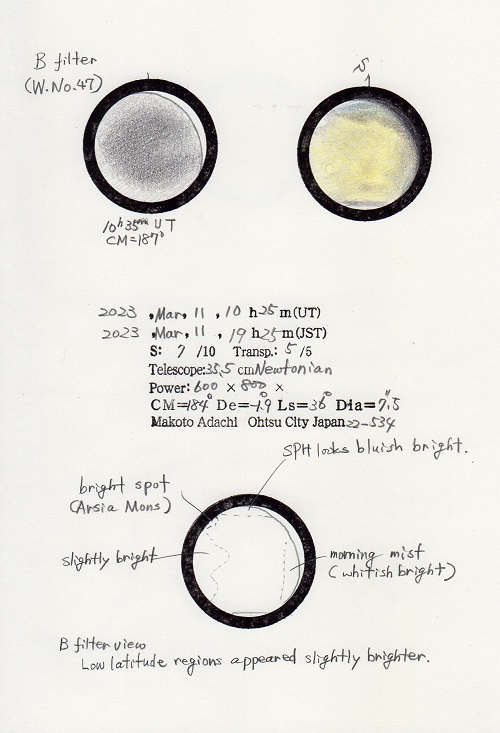 B filter
(W.No.47)
S
10h 35m UT
CM=187°
2023 , Mar, 11 , 10 h25m(UT)
2023 , Mar, 11 , 19 h25m(JST)
S: 7 /10 Transp.: 5 /5
Telescope:35.5 cm Newtonian
Power: 600 × 800 ×
CM=184° De=-1.9° Ls=36° Dia=7."5
Makoto Adachi Ohtsu City Japan 22-534
SPH looks bluish bright.
bright spot
(Arsia Mons)
slightly bright
morning mist
(whitish bright)
B filter view
Low latitude regions appeared slightly brighter.